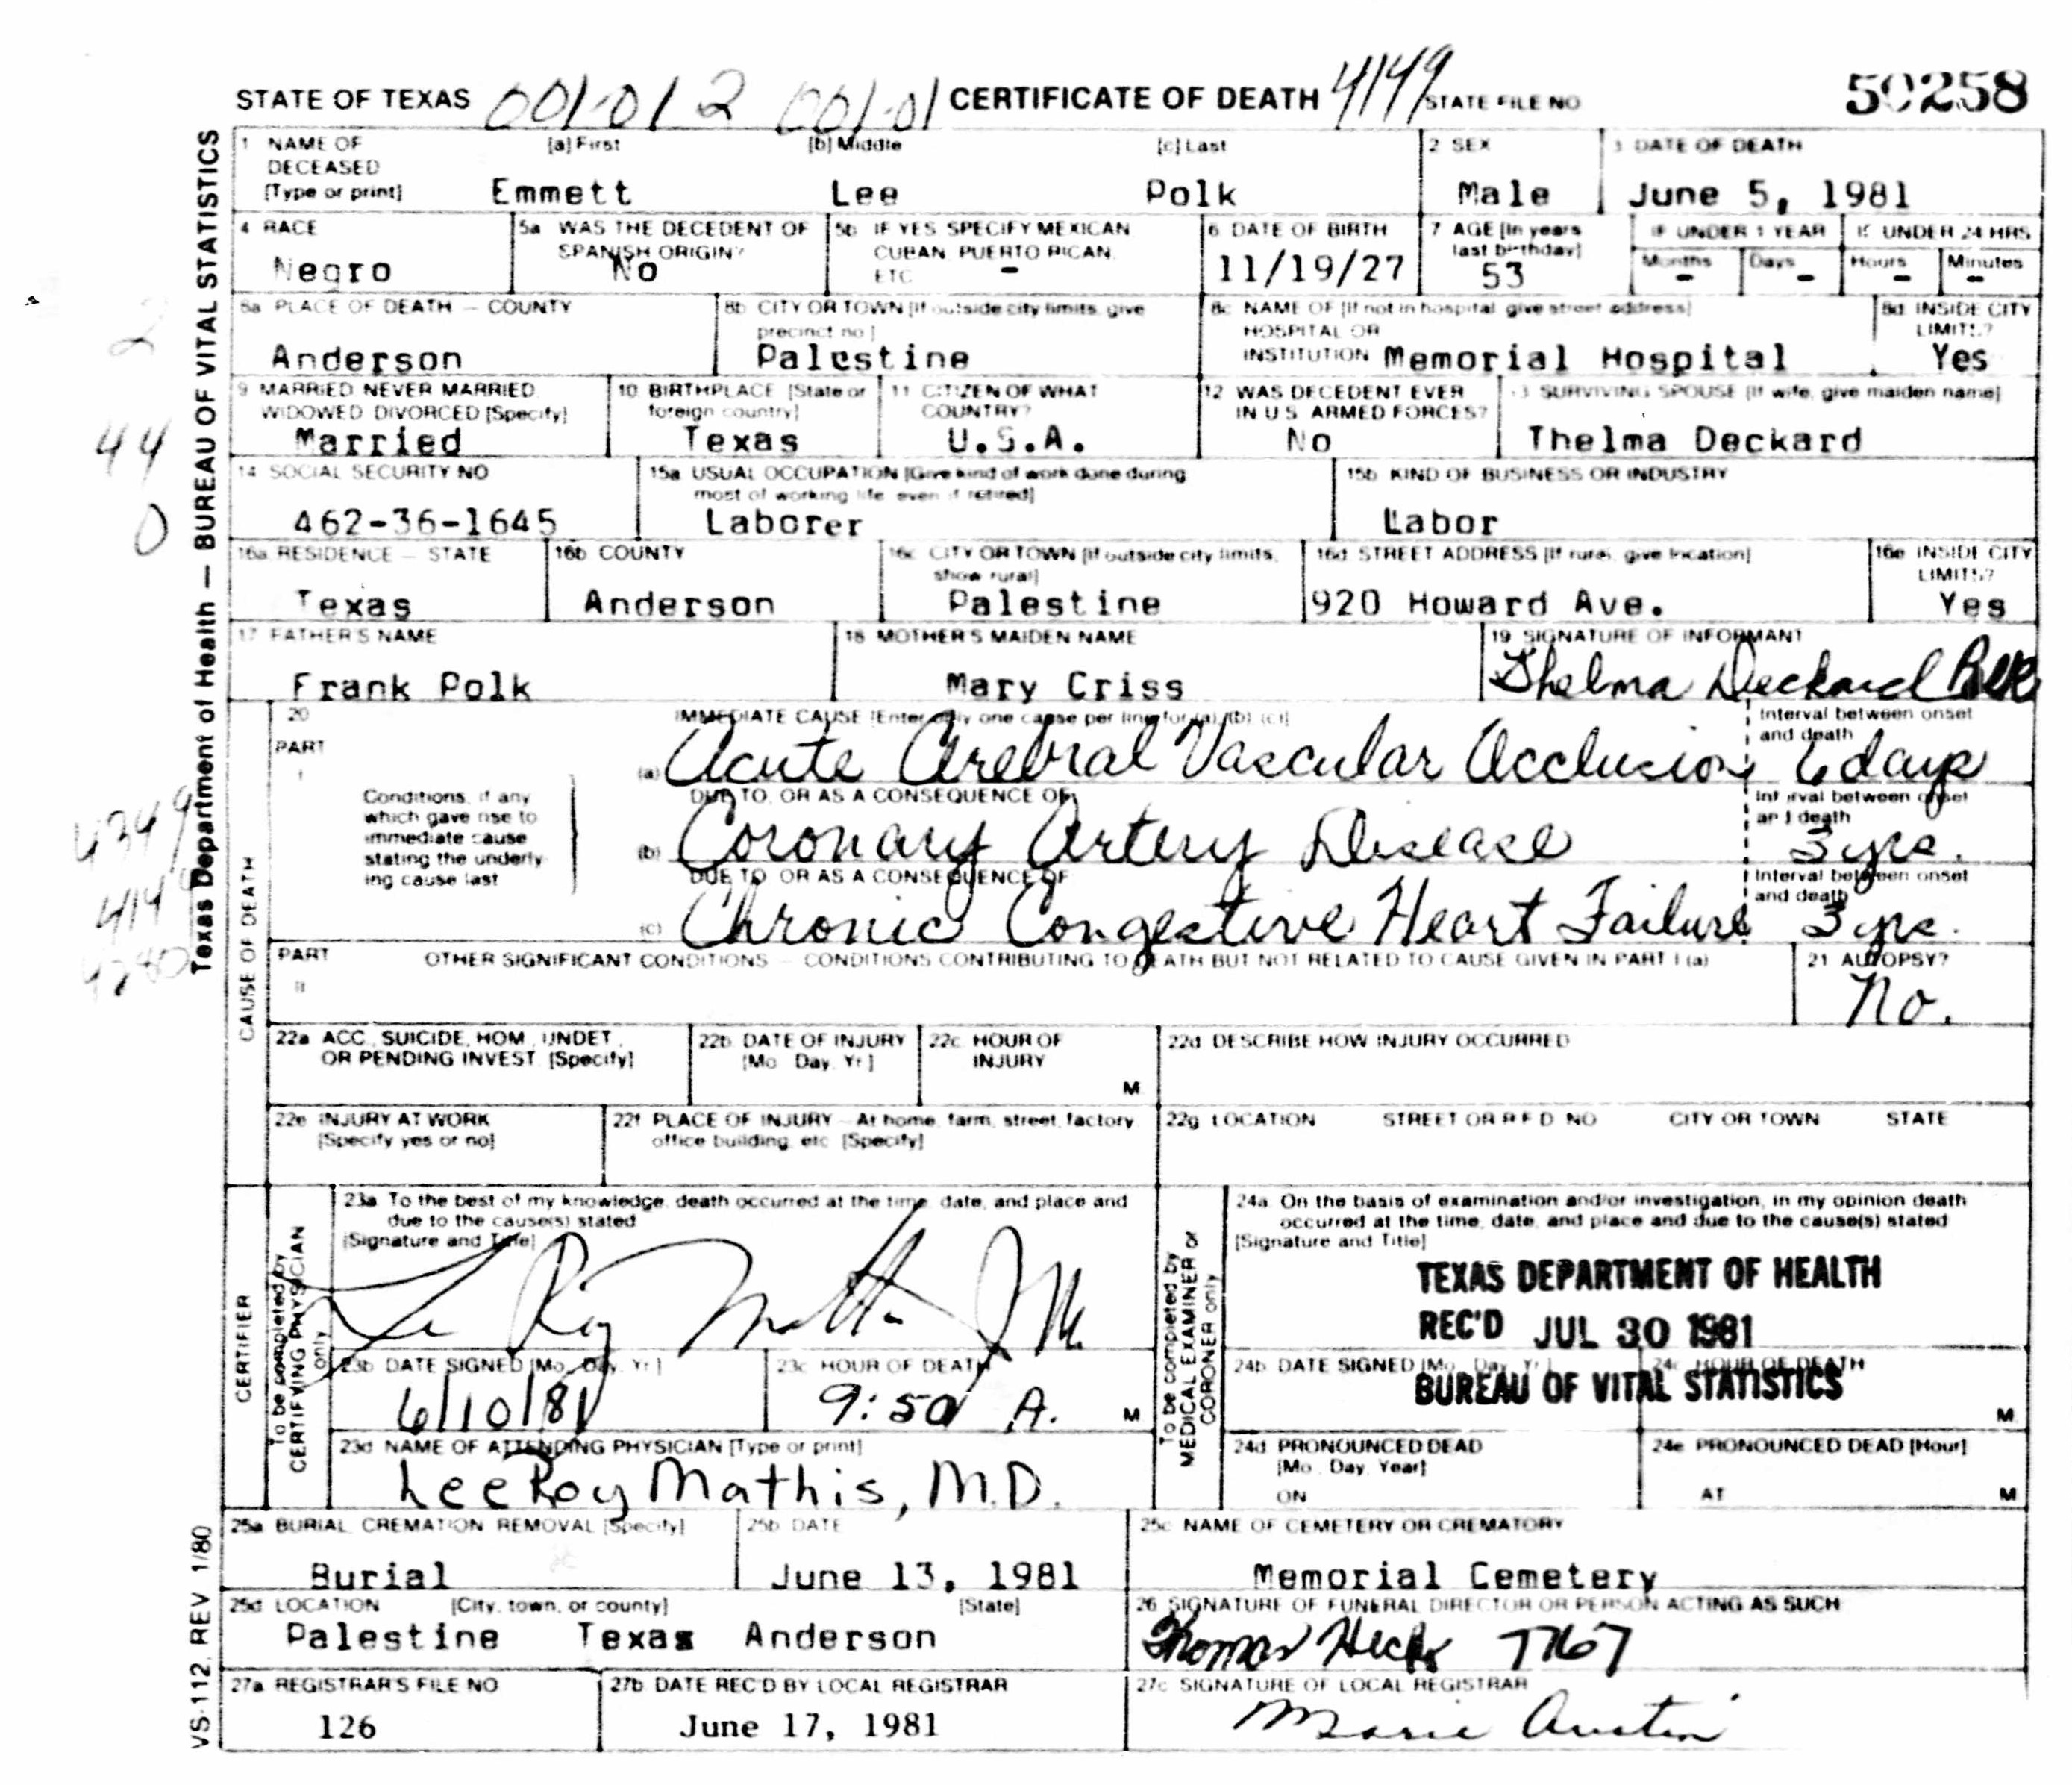 STATE OF TEXAS 001-012 001-01 CERTIFICATE OF DEATH 4149 STATE FILE NO 50258
Texas Department of Health — BUREAU OF VITAL STATISTICS
1 NAME OF DECEASED [Type or print] (a) First (b) Middle (c) Last
Emmett Lee Polk
2 SEX
Male
3 DATE OF DEATH
June 5, 1981
4 RACE
Negro
5a WAS THE DECEDENT OF SPANISH ORIGIN?
No
5b IF YES SPECIFY MEXICAN CUBAN PUERTO RICAN ETC
-
6 DATE OF BIRTH
11/19/27
7 AGE [In years last birthday]
53
IF UNDER 1 YEAR
Months - Days -
IF UNDER 24 HRS
Hours - Minutes -
8a PLACE OF DEATH — COUNTY
Anderson
8b CITY OR TOWN [If outside city limits, give precinct no]
Palestine
8c NAME OF [If not in hospital give street address] HOSPITAL OR INSTITUTION
Memorial Hospital
8d INSIDE CITY LIMITS?
Yes
9 MARRIED NEVER MARRIED WIDOWED DIVORCED [Specify]
Married
10 BIRTHPLACE [State or foreign country]
Texas
11 CITIZEN OF WHAT COUNTRY?
U.S.A.
12 WAS DECEDENT EVER IN U S ARMED FORCES?
No
13 SURVIVING SPOUSE [If wife, give maiden name]
Thelma Deckard
2
44
0
14 SOCIAL SECURITY NO
462-36-1645
15a USUAL OCCUPATION [Give kind of work done during most of working life even if retired]
Laborer
15b KIND OF BUSINESS OR INDUSTRY
Labor
16a RESIDENCE — STATE
Texas
16b COUNTY
Anderson
16c CITY OR TOWN [If outside city limits, show rural]
Palestine
16d STREET ADDRESS [If rural, give location]
920 Howard Ave.
16e INSIDE CITY LIMITS?
Yes
17 FATHER'S NAME
Frank Polk
18 MOTHER'S MAIDEN NAME
Mary Criss
19 SIGNATURE OF INFORMANT
Thelma Deckard Polk
CAUSE OF DEATH
20 PART I
IMMEDIATE CAUSE [Enter only one cause per line for (a) (b) (c)]
(a) Acute Cerebral Vascular Occlusion
Interval between onset and death
6 days
Conditions, if any which gave rise to immediate cause stating the underlying cause last
DUE TO, OR AS A CONSEQUENCE OF
(b) Coronary Artery Disease
Interval between onset and death
3 yrs.
DUE TO OR AS A CONSEQUENCE OF
(c) Chronic Congestive Heart Failure
Interval between onset and death
3 yrs.
4349
414
PART II
OTHER SIGNIFICANT CONDITIONS — CONDITIONS CONTRIBUTING TO DEATH BUT NOT RELATED TO CAUSE GIVEN IN PART I (a)
21 AUTOPSY?
No.
22a ACC, SUICIDE, HOM, UNDET, OR PENDING INVEST. [Specify]
22b DATE OF INJURY [Mo Day, Yr]
22c HOUR OF INJURY
M
22d DESCRIBE HOW INJURY OCCURRED
22e INJURY AT WORK [Specify yes or no]
22f PLACE OF INJURY — At home, farm, street, factory office building, etc [Specify]
22g LOCATION STREET OR R F D NO CITY OR TOWN STATE
CERTIFIER
To be completed by CERTIFYING PHYSICIAN only
23a To the best of my knowledge, death occurred at the time, date, and place and due to the cause(s) stated
[Signature and Title]
23b DATE SIGNED [Mo, Day, Yr]
6/10/81
23c HOUR OF DEATH
9:50 A. M
23d NAME OF ATTENDING PHYSICIAN [Type or print]
LeeRoy Mathis, M.D.
To be completed by MEDICAL EXAMINER or CORONER only
24a On the basis of examination and/or investigation, in my opinion death occurred at the time, date, and place and due to the cause(s) stated
[Signature and Title]
TEXAS DEPARTMENT OF HEALTH
REC'D JUL 30 1981
BUREAU OF VITAL STATISTICS
24b DATE SIGNED [Mo, Day, Yr]
24c HOUR OF DEATH
M
24d PRONOUNCED DEAD [Mo, Day, Year]
ON
24e PRONOUNCED DEAD [Hour]
AT M
25a BURIAL CREMATION REMOVAL [Specify]
Burial
25b DATE
June 13, 1981
25c NAME OF CEMETERY OR CREMATORY
Memorial Cemetery
25d LOCATION [City, town, or county] [State]
Palestine Texas Anderson
26 SIGNATURE OF FUNERAL DIRECTOR OR PERSON ACTING AS SUCH
Thomas Hecks 7767
27a REGISTRAR'S FILE NO
126
27b DATE REC'D BY LOCAL REGISTRAR
June 17, 1981
27c SIGNATURE OF LOCAL REGISTRAR
Marie Austin
VS-112, REV 1/80